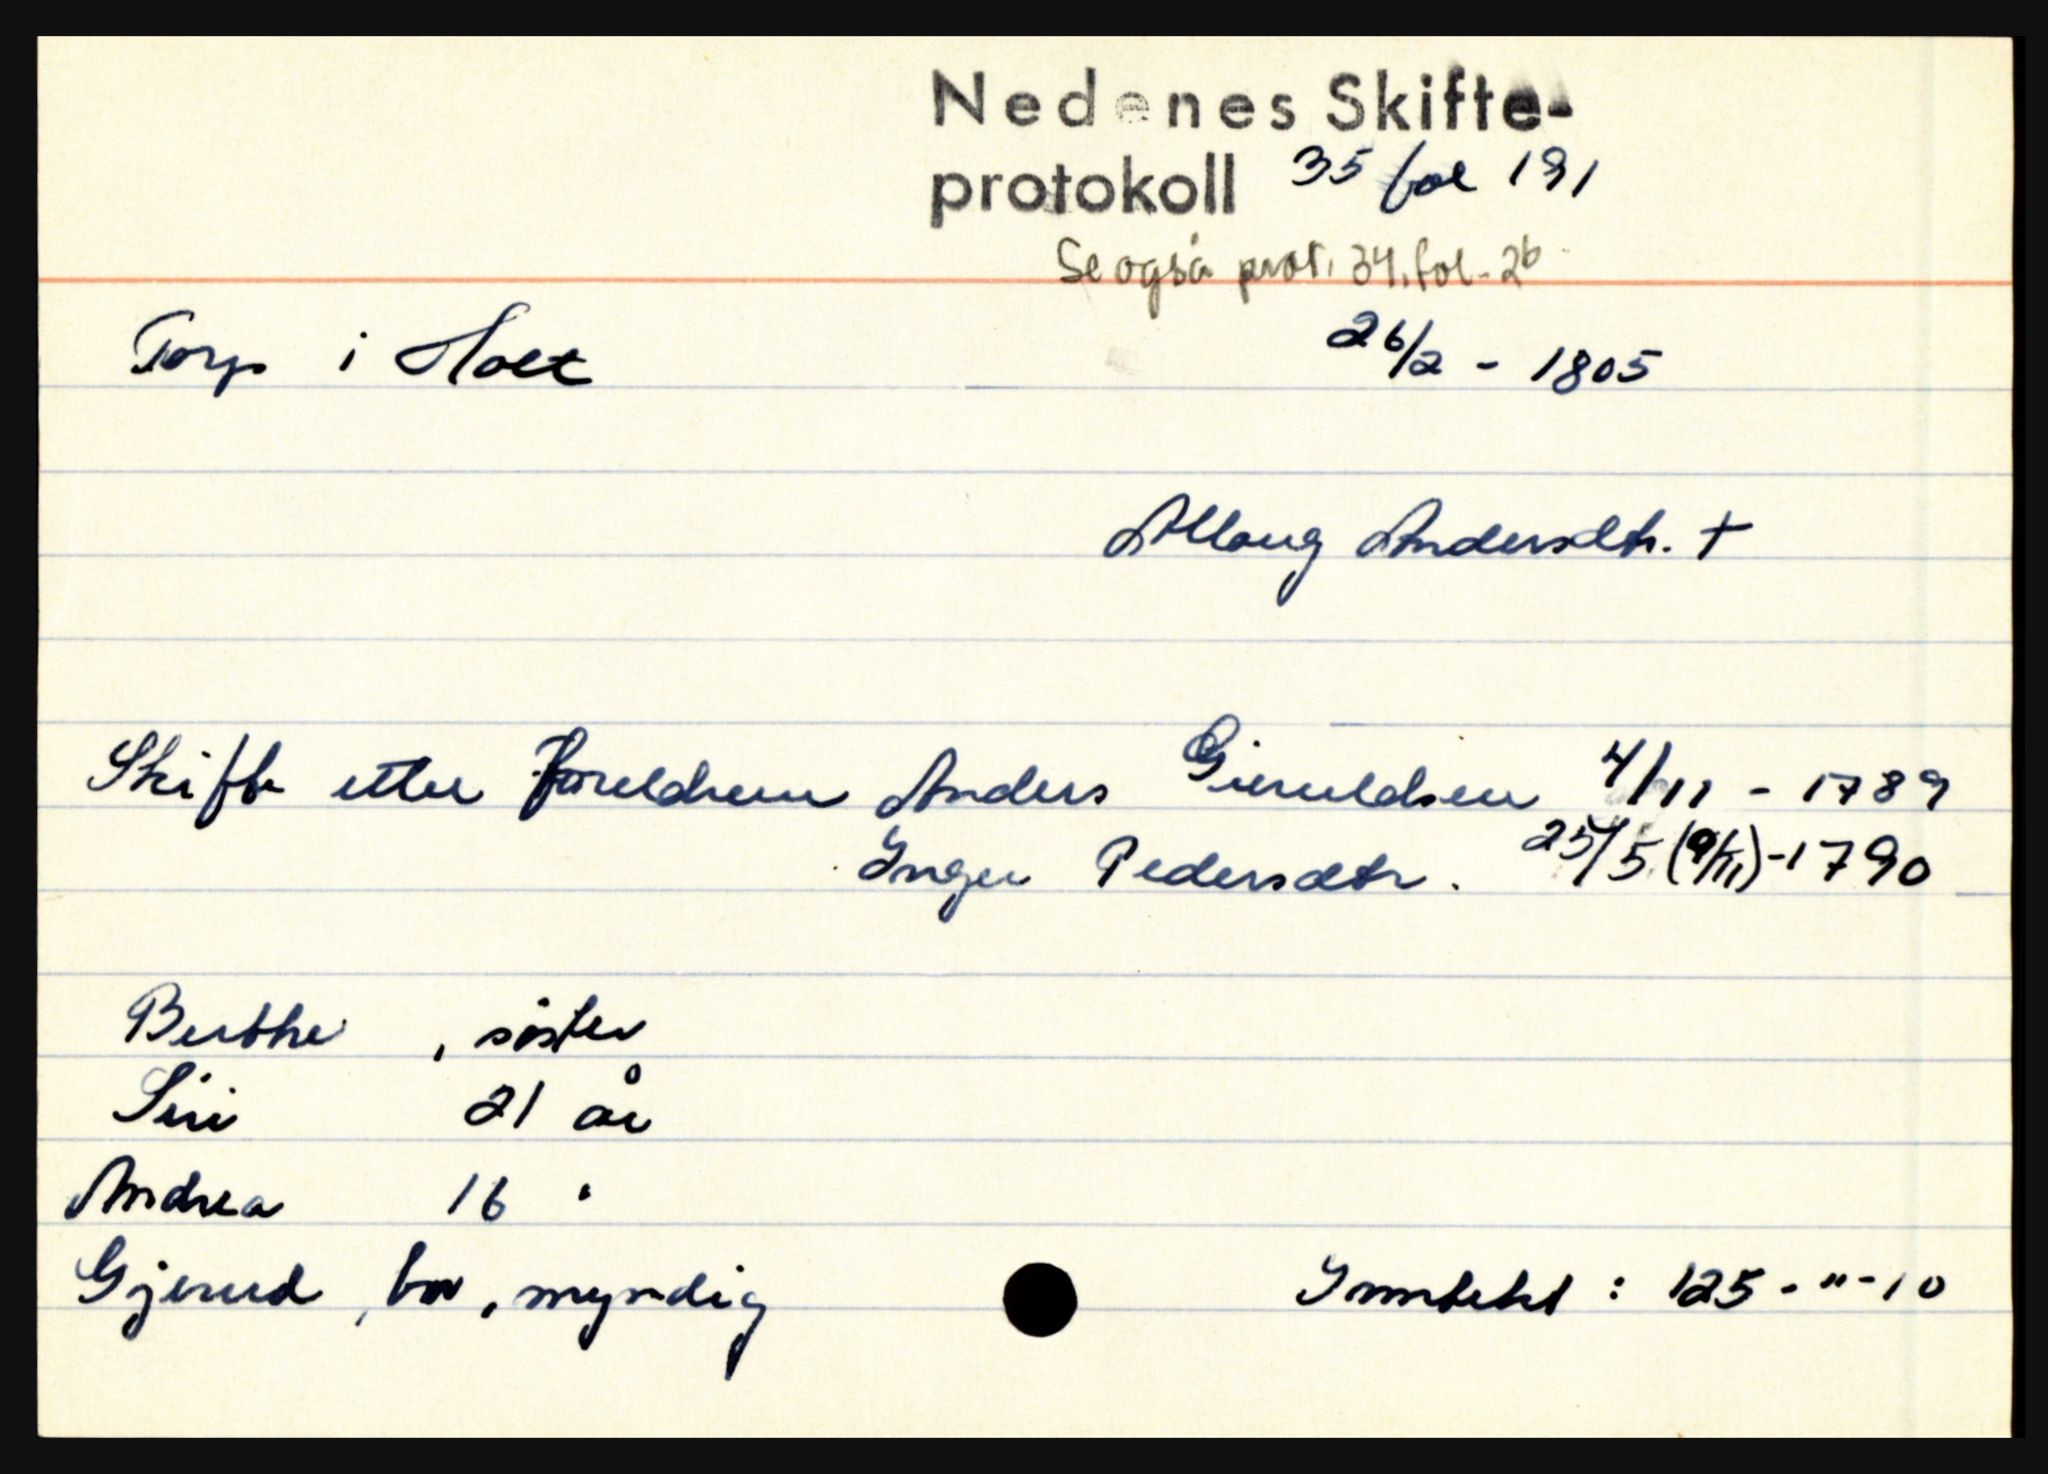 Nedenes Skifte-
protokoll 35 fol 191
Se også prot. 34, fol. 26
Torp i Holt 26/2 - 1805
Allaug Andersdtr. +
Skifte etter foreldrene Anders Gieruldsen 4/11 - 1789
Inger Pedersdtr. 25/5 (9/11) - 1790
Berthe , söster
Siri 21 år
Andrea 16 "
Gjerud , bor , myndig Inntekt : 125 - " - 10